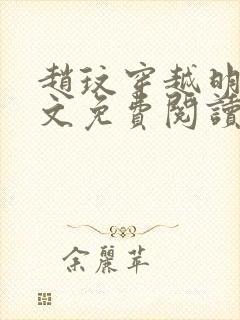 趙玟穿越明
文免費閱讀
余麗苹